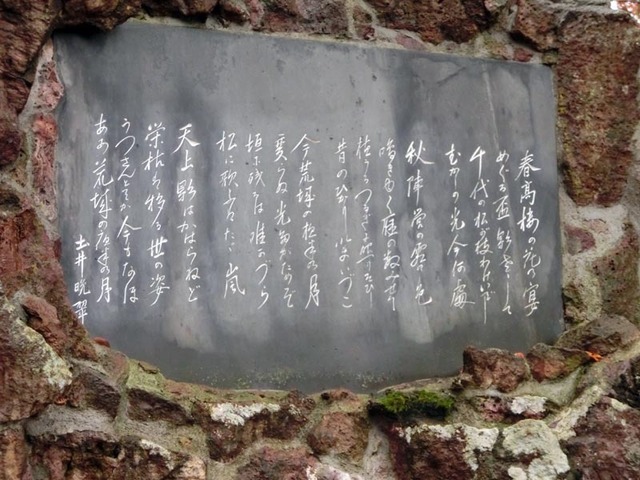 春高楼の花の宴
めぐる盃影さして
千代の松が枝わけいでし
むかしの光今何處
秋陣営の霜の色
鳴き行く雁の数見せて
植うるつるぎに照りそひし
昔のひかり今いづこ
今荒城の夜半の月
変らぬ光たがためぞ
垣に残るは唯かづら
松に歌ふはたゞ嵐
天上影はかはらねど
栄枯は移る世の姿
うつさんとてか今もなほ
あゝ荒城の夜半の月
土井晩翠